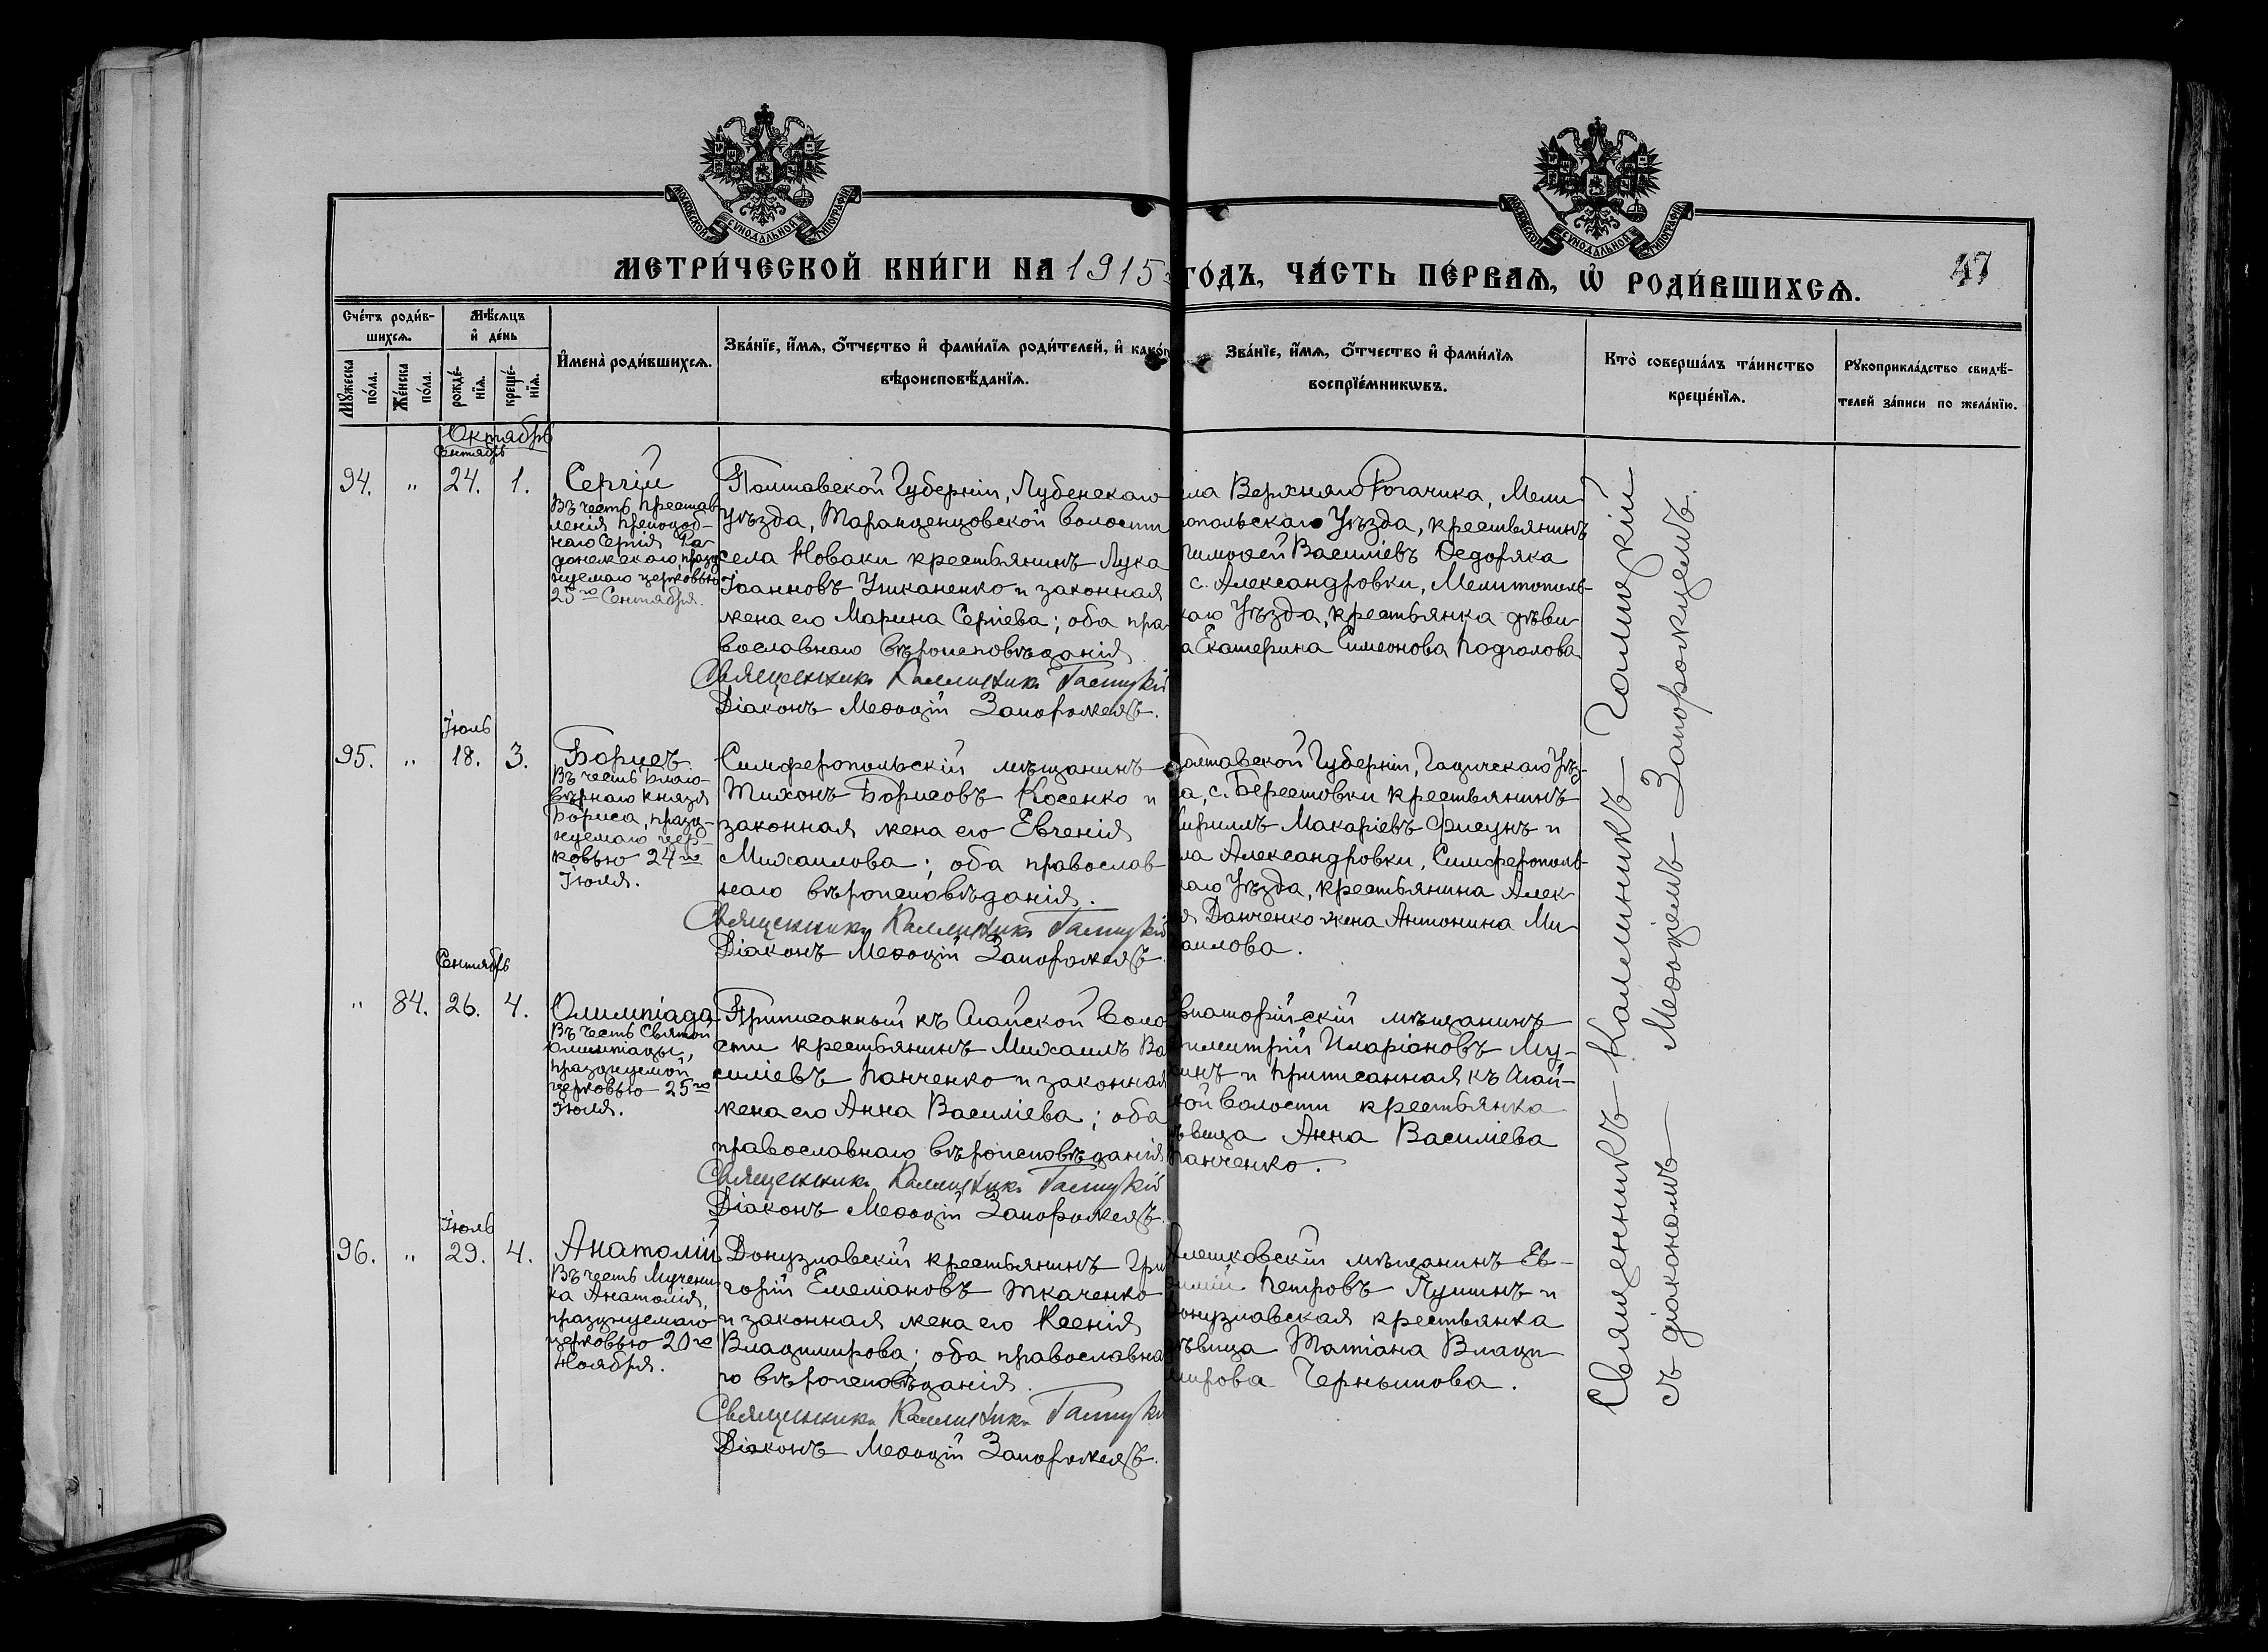 МОСКОВСКОЙ СѴНОДАЛЬНОЙ ТИПОГРАФІИ
МОСКОВСКОЙ СѴНОДАЛЬНОЙ ТИПОГРАФІИ
МЕТРИ́ЧЕСКОЙ КНИ́ГИ НА 1915 ГО́ДЪ, ЧА́СТЬ ПЕ́РВАѦ, Ѡ҆ РОДИ́ВШИХСѦ.
47
Сче́тъ роди́в-
шихсѧ.
Мѣ́сѧцъ
и҆ де́нь
Мꙋ́жеска
по́ла.
Же́нска
по́ла.
рожде́-
нїѧ.
креще́-
нїѧ.
И҆мена̀ роди́вшихсѧ.
Зва́нїе, и҆́мѧ, ѻ҆́тчество и҆ фами́лїѧ роди́телей, и҆ како́
вѣроисповѣ́данїѧ.
Зва́нїе, и҆́мѧ, ѻ҆́тчество и҆ фами́лїѧ
воспрїе́мникѡвъ.
Кто̀ соверша́лъ та́инство
креще́нїѧ.
Рꙋкоприкла́дство свидѣ́-
телей за́писи по жела́нїю.
Октябрь
Сентябрь
94. " 24. 1.
Сергій
Въ честь престав
ленія преподоб-
наго Сергія Ра-
донежскаго, празд
нуемаго церковью
25го Сентября.
Полтавской Губерніи, Лубенскаго
Уѣзда, Тарандинцовской волости
села Новаки крестьянинъ Лука
Іоанновъ Уписаненко и законная
жена его Марина Сергіева; оба пра-
вославнаго вѣроисповѣданія
Священникъ Каллиникъ Галицкій
Діаконъ Меѳодій Запорожецъ.
ла Верхняго Рогачика, Мели-
опольскаго Уѣзда, крестьянинъ
Тимоѳей Василіевъ Ѳедоряка
с. Александровки, Мелитополь-
каго Уѣзда, крестьянка дѣви-
а Екатерина Симеонова Подчалова
Іюль
95. " 18. 3.
Борисъ
Въ честь Благо-
вѣрнаго Князя
Бориса, празд-
нуемаго цер-
ковью 24го
Іюля.
Симферопольскій мѣщанинъ
Тихонъ Борисовъ Косенко и
законная жена его Евгенія
Михаилова; оба православ-
наго вѣроисповѣданія.
Священникъ Каллиникъ Галицкій
Діаконъ Меѳодій Запорожецъ.
олтавской Губерніи, Гадичскаго Уѣз-
а, с. Берестовки крестьянинъ
Кириллъ Макаріевъ Фисунъ и
ла Александровки, Симферополь-
каго Уѣзда, крестьянина Алек-
я Данченко жена Антонина Ми-
аилова.
Сентябрь
" 84. 26. 4.
Олимпіада
Въ честь Святой
Олимпіады,
празднуемой
церковью 25го
Іюля.
Приписанный къ Агайской воло
сти крестьянинъ Михаилъ Ва
силіевъ Панченко и законная
жена его Анна Василіева; оба
православнаго вѣроисповѣданія
Священникъ Каллиникъ Галицкій
Діаконъ Меѳодій Запорожецъ.
впаторійскій мѣщанинъ
Димитрій Иларіоновъ Му-
инъ и приписанная къ Агай-
кой волости крестьянка
ѣвица Анна Василіева
Панченко.
Іюль
96. " 29. 4.
Анатолій
Въ честь Мучени
ка Анатолія,
празднуемаго
церковью 20го
Ноября.
Донузлавскій крестьянинъ Гри
горій Емеліановъ Ткаченко
и законная жена его Ксенія
Владимирова; оба православна
го вѣроисповѣданія.
Священникъ Каллиникъ Галицкій
Діаконъ Меѳодій Запорожецъ.
Алешковскій мѣщанинъ Ев-
имій Петровъ Лушинъ и
Донузлавская крестьянка
ѣвица Татіана Влади-
мирова Чернышова.
Священникъ Каллиникъ Галицкій
съ діакономъ Меѳодіемъ Запорожцемъ.